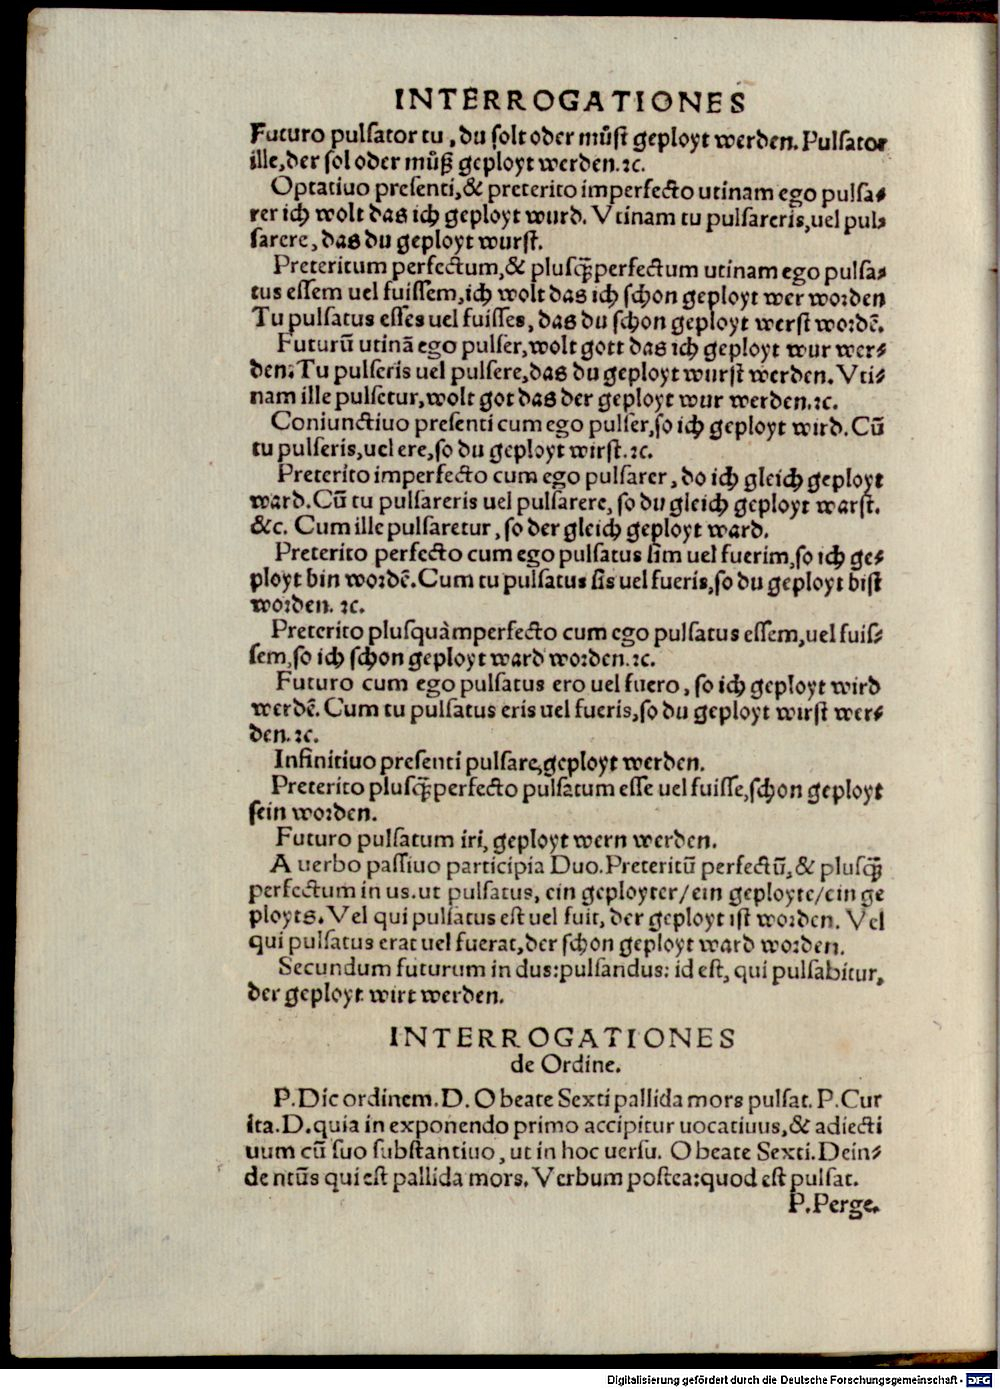 INTERROGATIONES
Futuro pulsator tu, du solt oder můst geployt werden. Pulsator
ille, der sol oder můß geployt werden.⁊c.
Optatiuo presenti, & preterito imperfecto utinam ego pulsa⸗
rer ich wolt das ich geployt wurd. Vtinam tu pulsareris, uel pul⸗
sarere, das du geployt wurst.
Preteritum perfectum, & plusq̃perfectum utinam ego pulsa⸗
tus essem uel fuissem, ich wolt das ich schon geployt wer worden
Tu pulsatus esses uel fuisses, das du schon geployt werst wordē.
Futurū utinā ego pulser, wolt gott das ich geployt wur wer⸗
den. Tu pulseris uel pulsere, das du geployt wurst werden. Vti⸗
nam ille pulsetur, wolt got das der geployt wur werden.⁊c.
Coniunctiuo presenti cum ego pulser, so ich geployt wird. Cū
tu pulseris, uel ere, so du geployt wirst.⁊c.
Preterito imperfecto cum ego pulsarer, do ich gleich geployt
ward. Cū tu pulsareris uel pulsarere, so du gleich geployt warst.
&c. Cum ille pulsaretur, so der gleich geployt ward.
Preterito perfecto cum ego pulsatus sim uel fuerim, so ich ge⸗
ployt bin wordē. Cum tu pulsatus sis uel fueris, so du geployt bist
worden. ⁊c.
Preterito plusquàmperfecto cum ego pulsatus essem, uel fuis⸗
sem, so ich schon geployt ward worden.⁊c.
Futuro cum ego pulsatus ero uel fuero, so ich geployt wird
werdē. Cum tu pulsatus eris uel fueris, so du geployt wirst wer⸗
den.⁊c.
Infinitiuo presenti pulsare, geployt werden.
Preterito plusq̃perfecto pulsatum esse uel fuisse, schon geployt
sein worden.
Futuro pulsatum iri, geployt wern werden.
A uerbo passiuo participia Duo. Preteritū perfectū, & plusq̃
perfectum in us. ut pulsatus, ein geployter/ein geployte/ein ge
ployts. Vel qui pulsatus est uel fuit, der geployt ist worden. Vel
qui pulsatus erat uel fuerat, der schon geployt ward worden.
Secundum futurum in dus: pulsandus: id est, qui pulsabitur,
der geployt wirt werden.
INTERROGATIONES
de Ordine.
P. Dic ordinem. D. O beate Sexti pallida mors pulsat. P. Cur
ita. D. quia in exponendo primo accipitur uocatiuus, & adiecti
uum cū suo substantiuo, ut in hoc uersu. O beate Sexti. Dein⸗
de ntūs qui est pallida mors. Verbum postea: quod est pulsat.
P. Perge.
Digitalisierung gefördert durch die Deutsche Forschungsgemeinschaft - DFG